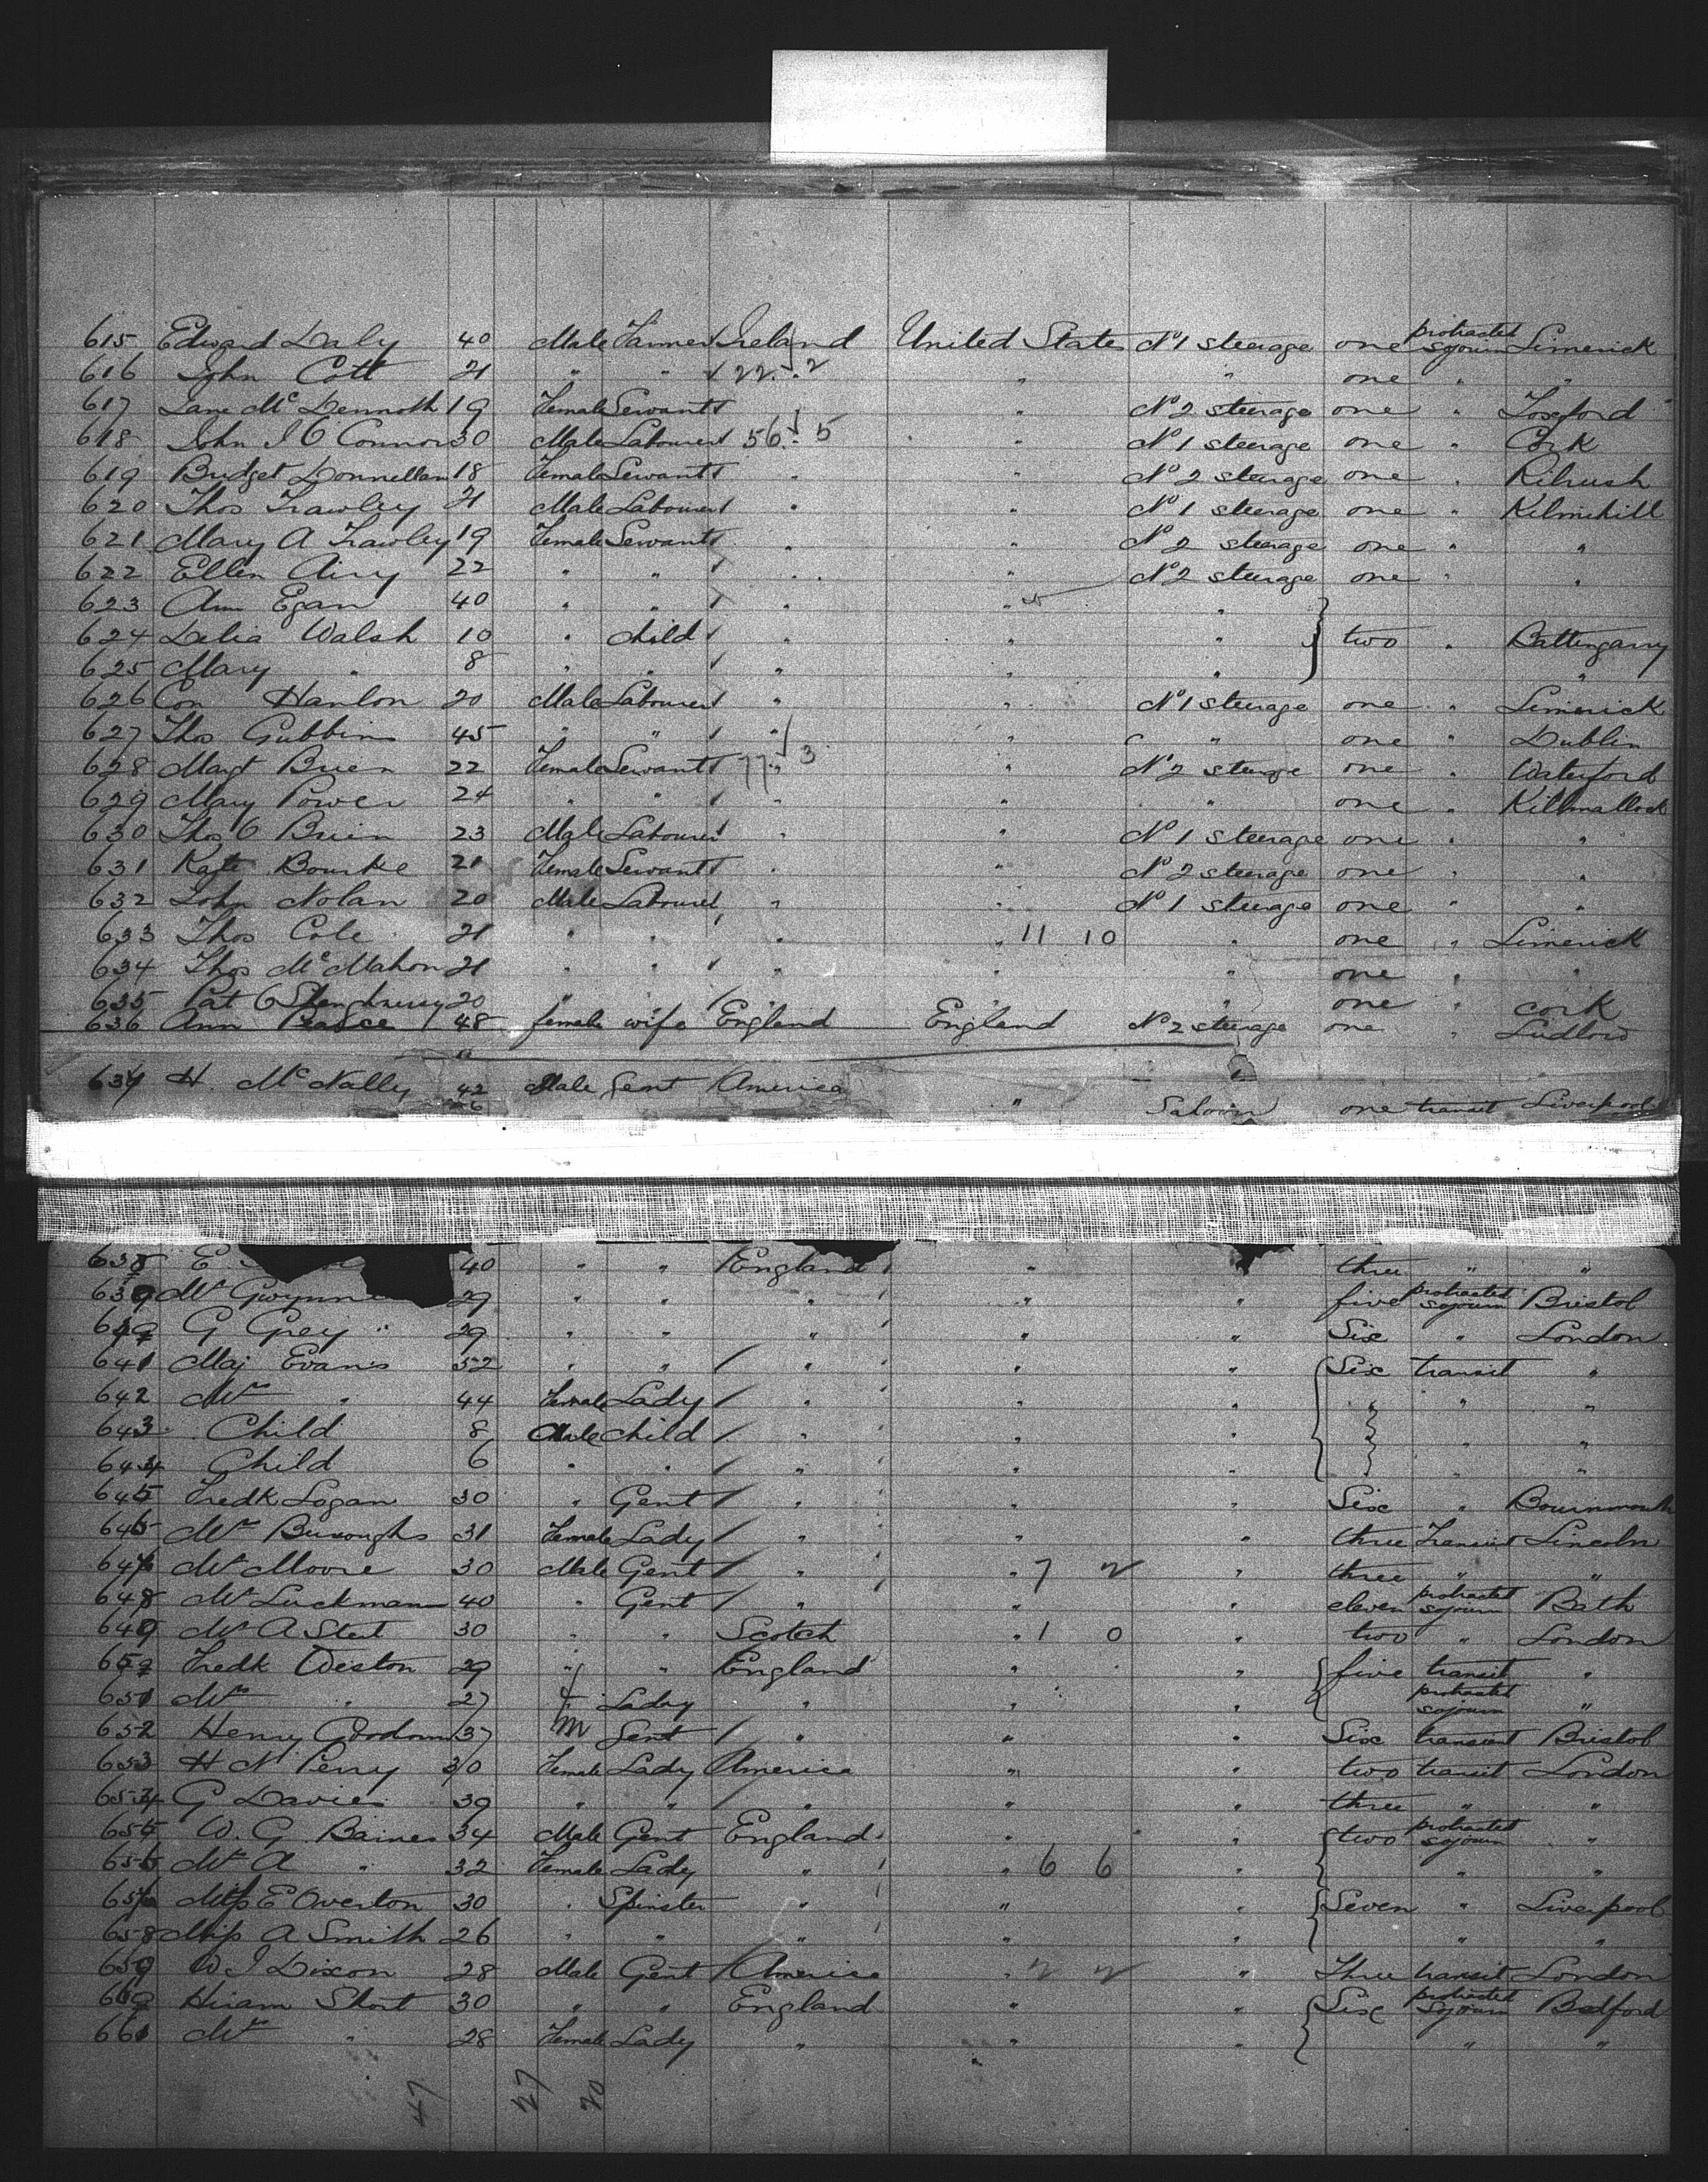 615 Edward Daly 40 Male Farmer Ireland United States No 1 steerage one protracted sojourn Limerick
616 John Cott 21 " " 22 . 2 " " one " "
617 Jane McDermoth 19 Female Servant " No 2 steerage one "
618 John J O Connor 30 Male Labourer 56 . 5 " No 1 steerage one " Cork
619 Bridget Donnellan 18 Female Servant " " No 2 steerage one " Kilrush
620 Thos Frawley 21 Male Labourer " " No 1 steerage one " Kilmihill
621 Mary A Frawley 19 Female Servant " " No 2 steerage one " "
622 Ellen Airy 22 " " " " No 2 steerage one " "
623 Ann Egan 40 " " " " "
624 Delia Walsh 10 " child " " " two " Ballingarry
625 Mary " 8 " " " " " "
626 Con Hanlon 20 Male Labourer " " No 1 steerage one " Limerick
627 Thos Gubbins 45 " " " " " one " Dublin
628 Margt Bruen 22 Female Servant 77 " 3 " No 2 steerage one " Waterford
629 Mary Power 24 " " " " " one " Killmallock
630 Thos O Brien 23 Male Labourer " " No 1 steerage one " "
631 Kate Bourke 21 Female Servant " " No 2 steerage one " "
632 John Nolan 20 Male Labourer " " No 1 steerage one " "
633 Thos Cole 21 " " " " 11 10 " one " Limerick
634 Thos McMahon 21 " " " " " one " "
635 Pat 20 " " one " cork
636 Ann Pearce 48 female wife England England No 2 steerage one " Ludlow
637 H. McNally 42 Male Gent America " Saloon one transit Liverpool
638 E 40 " " England " three " "
639 Mr Gwynne 29 " " " " " five protracted sojourn Bristol
640 G Grey 29 " " " " " Six " London
641 Maj Evans 52 " " " " " Six transit "
642 Mrs " 44 Female Lady " " " " " "
643 Child 8 Male child " " " " "
644 Child 6 " " " " " " "
645 Fredk Logan 30 " Gent " " " Six " Bournmouth
646 Mrs Burroughs 31 Female Lady " " " three Transit Lincoln
647 Mr Moore 30 Male Gent " " 7 2 " three " "
648 Mr Luckmann 40 " Gent " " " eleven protracted sojourn Bath
649 Mr A Stert 30 " " Scotch " 1 0 " two " London
650 Fredk Weston 29 " " England " " five transit "
651 Mrs " 27 f Lady " " " protracted sojourn "
652 Henry 37 m Gent " " " Six transient Bristol
653 H N Perry 30 Female Lady America " " two transit London
654 G Davies 39 " " " " " three " "
655 W. G. Baines 34 Male Gent England " " two protracted sojourn "
656 Mrs A " 32 Female Lady " " 6 6 " " "
657 Miss E Overton 30 " Spinster " " " Seven " Liverpool
658 Miss A Smith 26 " " " " " " "
659 W J Dixon 28 Male Gent America " 2 2 " Three transit London
660 Hiram Short 30 " " England " " Six protracted sojourn Bedford
661 Mrs " 28 Female Lady " " " " "
47 27 20